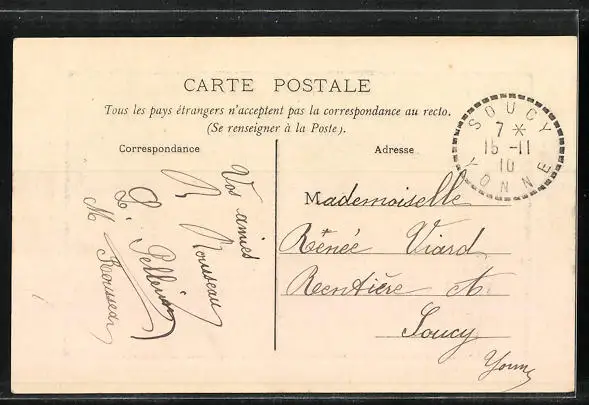 CARTE POSTALE
Tous les pays étrangers n'acceptent pas la correspondance au recto.
(Se renseigner à la Poste).
Correspondance
Adresse
SOUCY
7 *
15 -11
10
YONNE
Vos amies
R Rousseau
L. Pellerin
M Rousseau
Mademoiselle
Rénée Viard
Rentière A
Soucy
Yonne